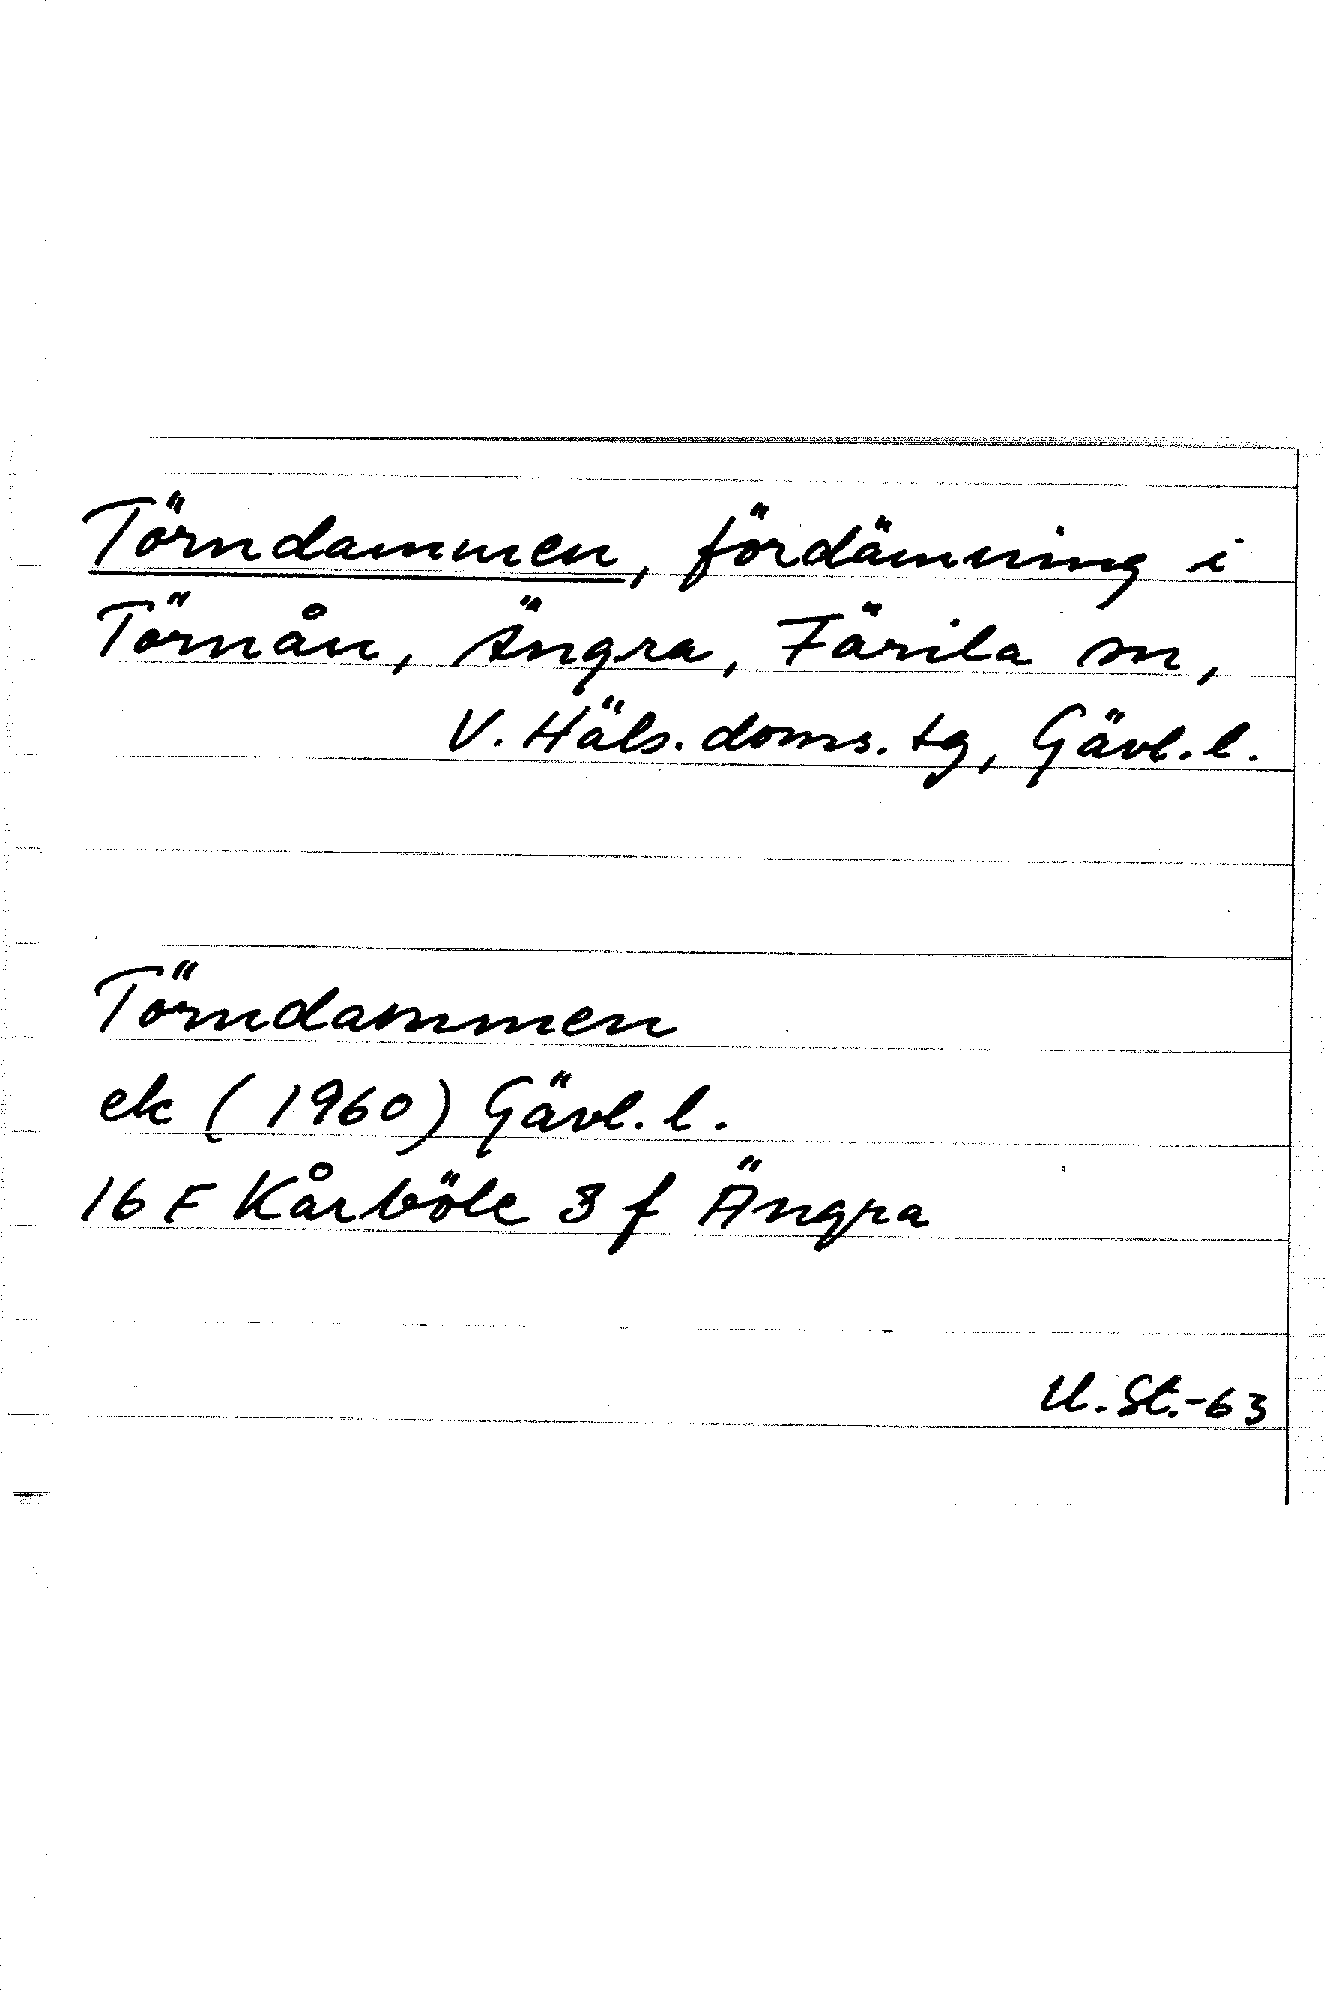 Törndammen, fördämning i
Törnån, Ängra, Färila sn,
V. Häls. doms. tg, Gävl. l.
Törndammen
ek (1960) Gävl. l.
16 F Kårböle 3 f Ängra
U. St. -63